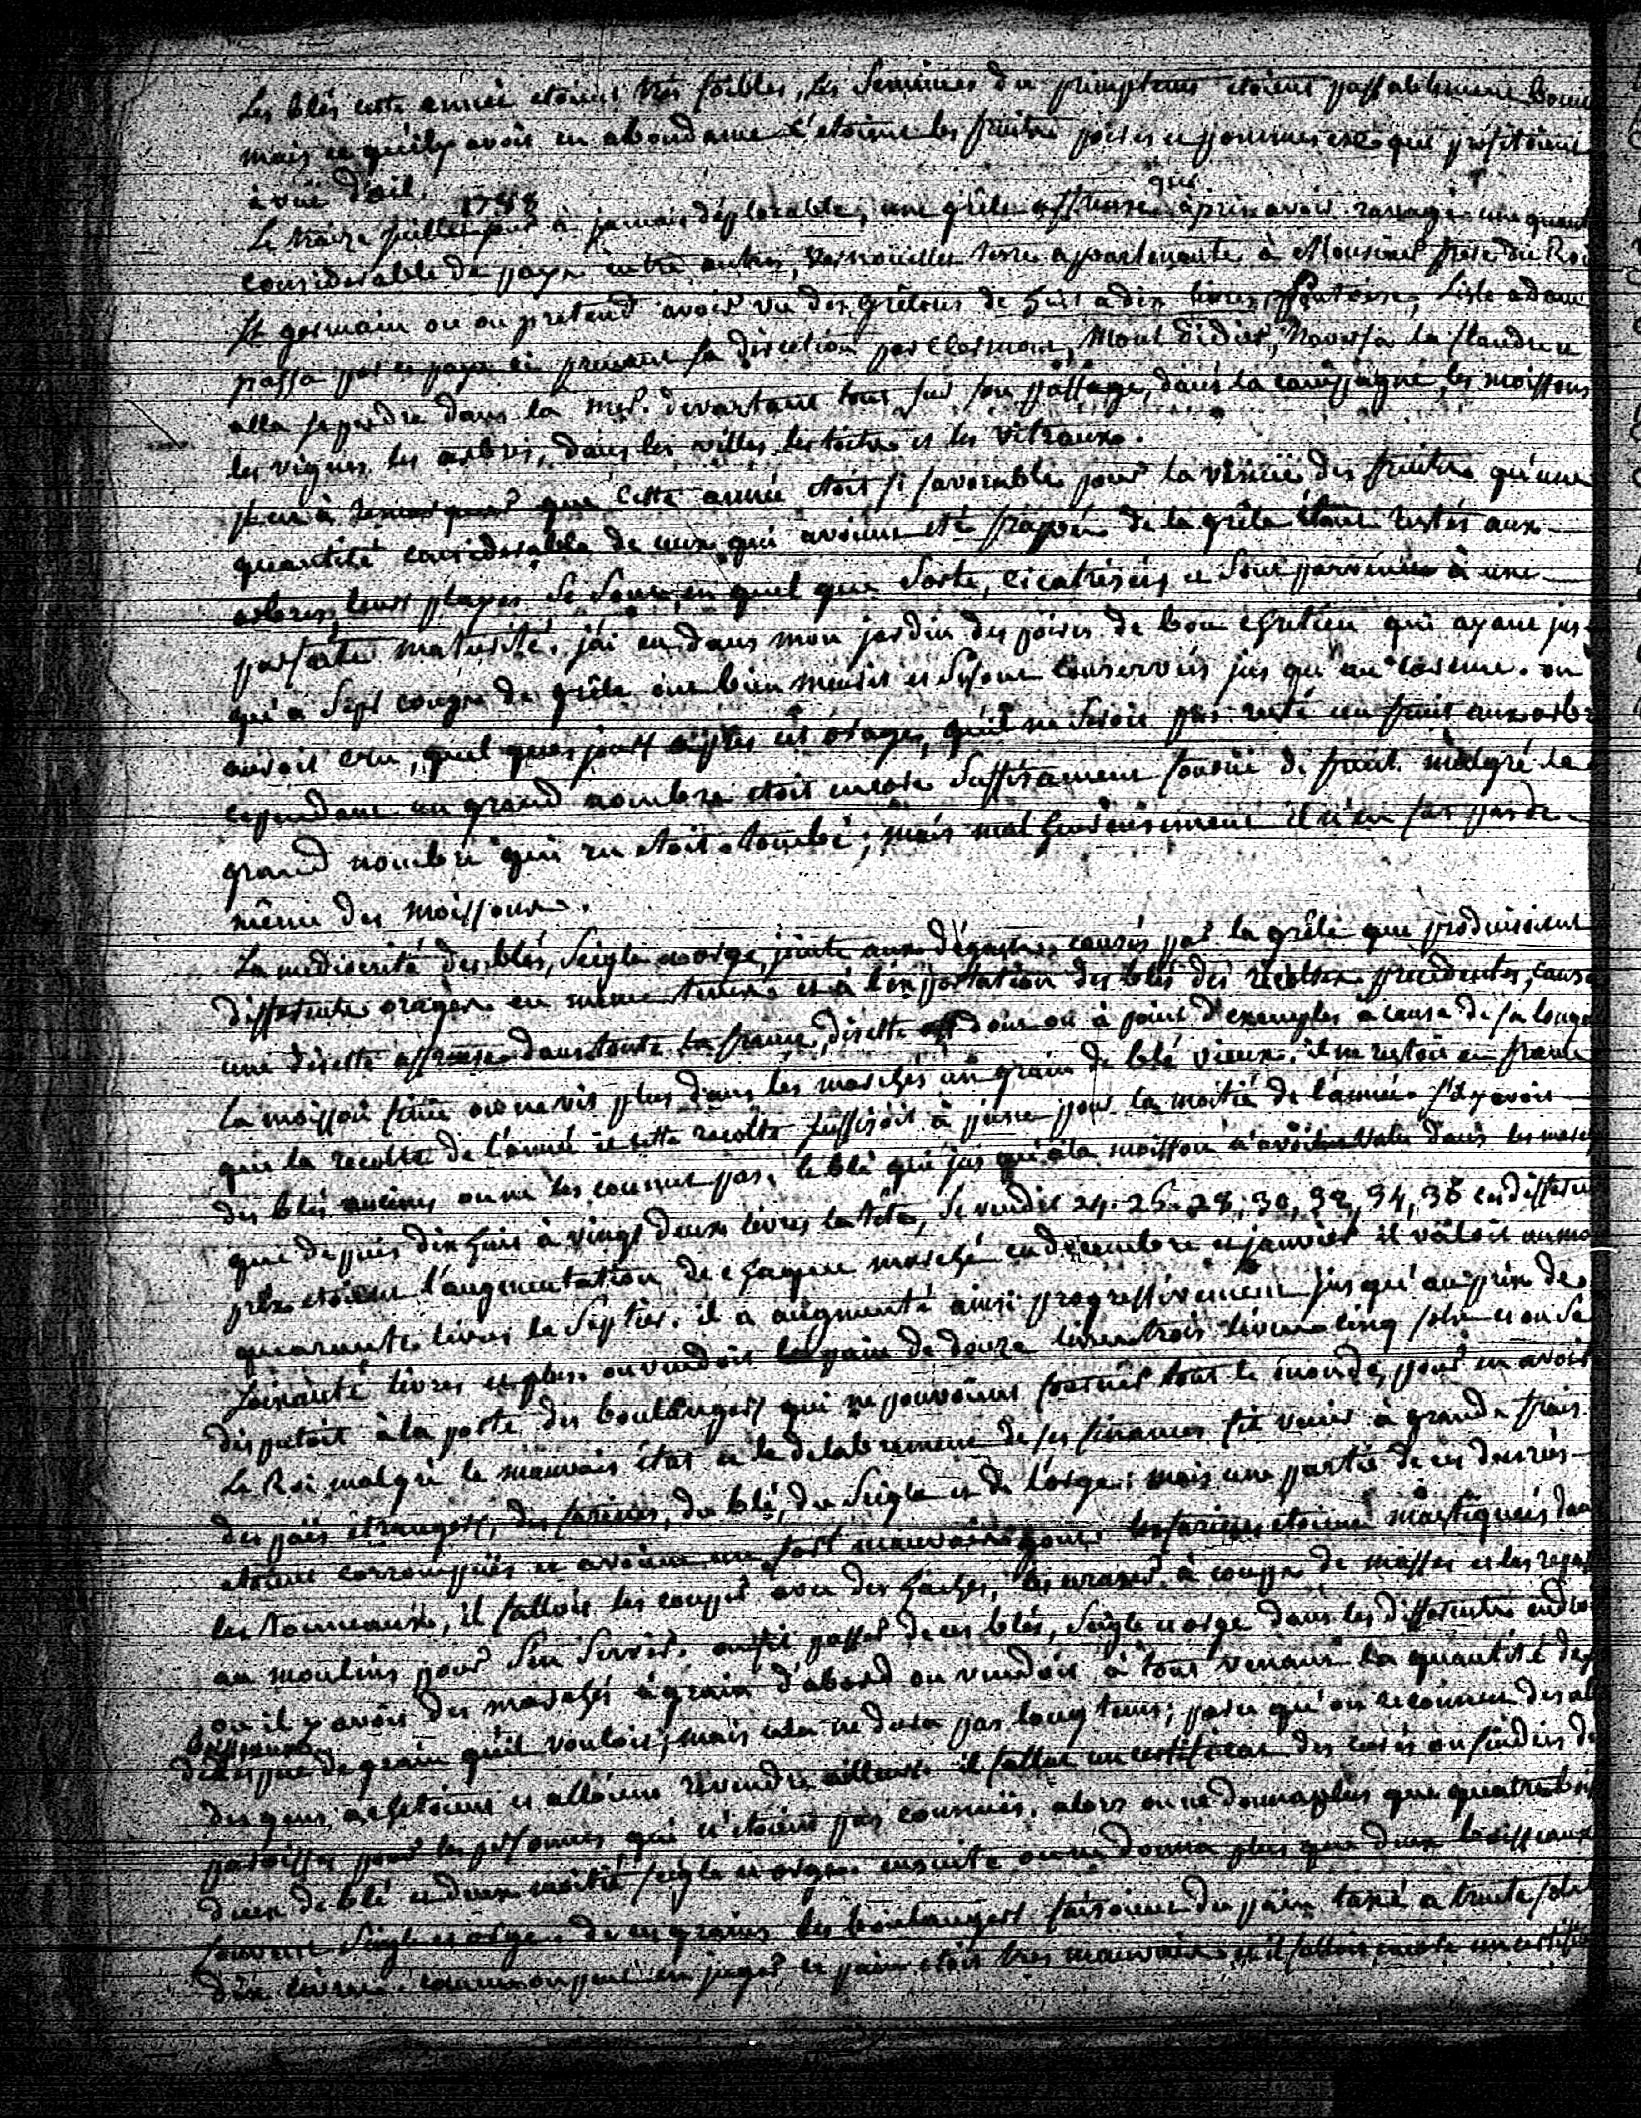 Les blés cette année etoient très foibles, les semences du printems etoient passablement bonn
mais ce qu'il y avoit en abondance c'etoient les fruits poires et pommes &c qui profitoient
à vuë d'œil.
Le treize juillet 1788 jour à jamais déplorable, une grêle affreuse qui après avoir ravagé une quant
considerable de pays entre autres, Vernouillet terre appartenante à Monsieur frere du Roi
St germain ou on pretend avoir vu des grêlons de huit a dix livres, Pontoise, Lisle adam
passa par ce pays ci prenant sa direction par Clermont, Mont didier, traversa la flandre et
alla se perdre dans la mer. devastant tout sur son passage, dans la campagne, les moissons
les vignes, les arbres, dans les villes les toits et les vitraux.
il est à remarquer que cette année etoit si favorable pour la venuë des fruits qu'une
quantité considerable de ceux qui avoient eté frappés de la grêle etant restés aux
arbres, leurs playes se sont, en quel que sorte, cicatrisées et sont parvenus à une
parfaite maturité. j'ai eu dans mon jardin des poires de bon chretien qui ayant jus
qu'a sept coups de grêle ont bien meuris et se sont conservées jus qu'au carême. on
auroit cru, quel ques jours après cet orage, qu'il ne seroit pas resté un fruit aux arbr
cependant un grand nombre etoit encore suffisament fourni de fruit malgré le
grand nombre qui en etoit tombé; mais mal heureusement il n'en fut pas de
même des moissons.
La mediocrité des blés, seigle et orge, jointe aux dégats causés par la grêle que produisirent
differents orages en même tems et à l'exportation des blés des récoltes precedentes, causa
une disette affreuse dans toute la france, disette dont on a point d'exemples à cause de sa longu
La moisson finie on ne vit plus dans les marchés un grain de blé vieux, il ne restoit en france
que la récolte de l'année et cette recolte suffisoit à peine pour la moitié de l'année. s'il y avoit
des blés anciens on ne les connut pas. le blé qui jus qu'à la moisson n'avoit valu dans les march
que depuis dix huit à vingt deux livres, se vendit 24. 26. 28, 30, 32, 34, 36 ces differen
prix etoient l'augmentation de chaque marché en decembre et janvier il valoit au mo
quarante livres le septier. il a augmenté ainsi progressivement jus qu'au prix de
soixante livres et plus. on vendoit le pain de douze livres trois livres cinq sols et on se
disputoit à la porte des boulangers qui ne pouvoient fournir tout le monde, pour en avoir
Le Roi malgré le mauvais état et le delabrement de ses finances fit venir à grands frais
des païs etrangers, des farines, du blé, du seigle et de l'orge: mais une partie de ces denrées
etoient corrompuës et avoient un fort mauvais gout. les farines etoient mastiquées dans
les tonneaux, il falloit les couper avec des haches, les ecraser à coups de masses et les repas
au moulins pour s'en servir. on fit passer de ces blés, seigle et orge dans les differents endro
ou il y avoit des marchés à grain d'abord on vendoit à tout venant la quantité de
boisseaux de grain qu'il vouloit, mais cela ne dura pas long tems; parce qu'on reconnu des ab
des gens achetoient et alloient revendre ailleurs. il fallut un certificat des curés ou sindics de
paroisses pour les personnes qui n'etoient pas connuës. alors on ne donna plus que quatre bois
deux de blé et deux moitié seigle et orge. ensuite on ne donna plus que deux boisseaux
souvent seigle et orge. de ces grains les boulangers faisoient du pain taxé a trente sols
dix livres. comme on peut en juger ce pain etoit tres mauvais et il falloit encore un certific